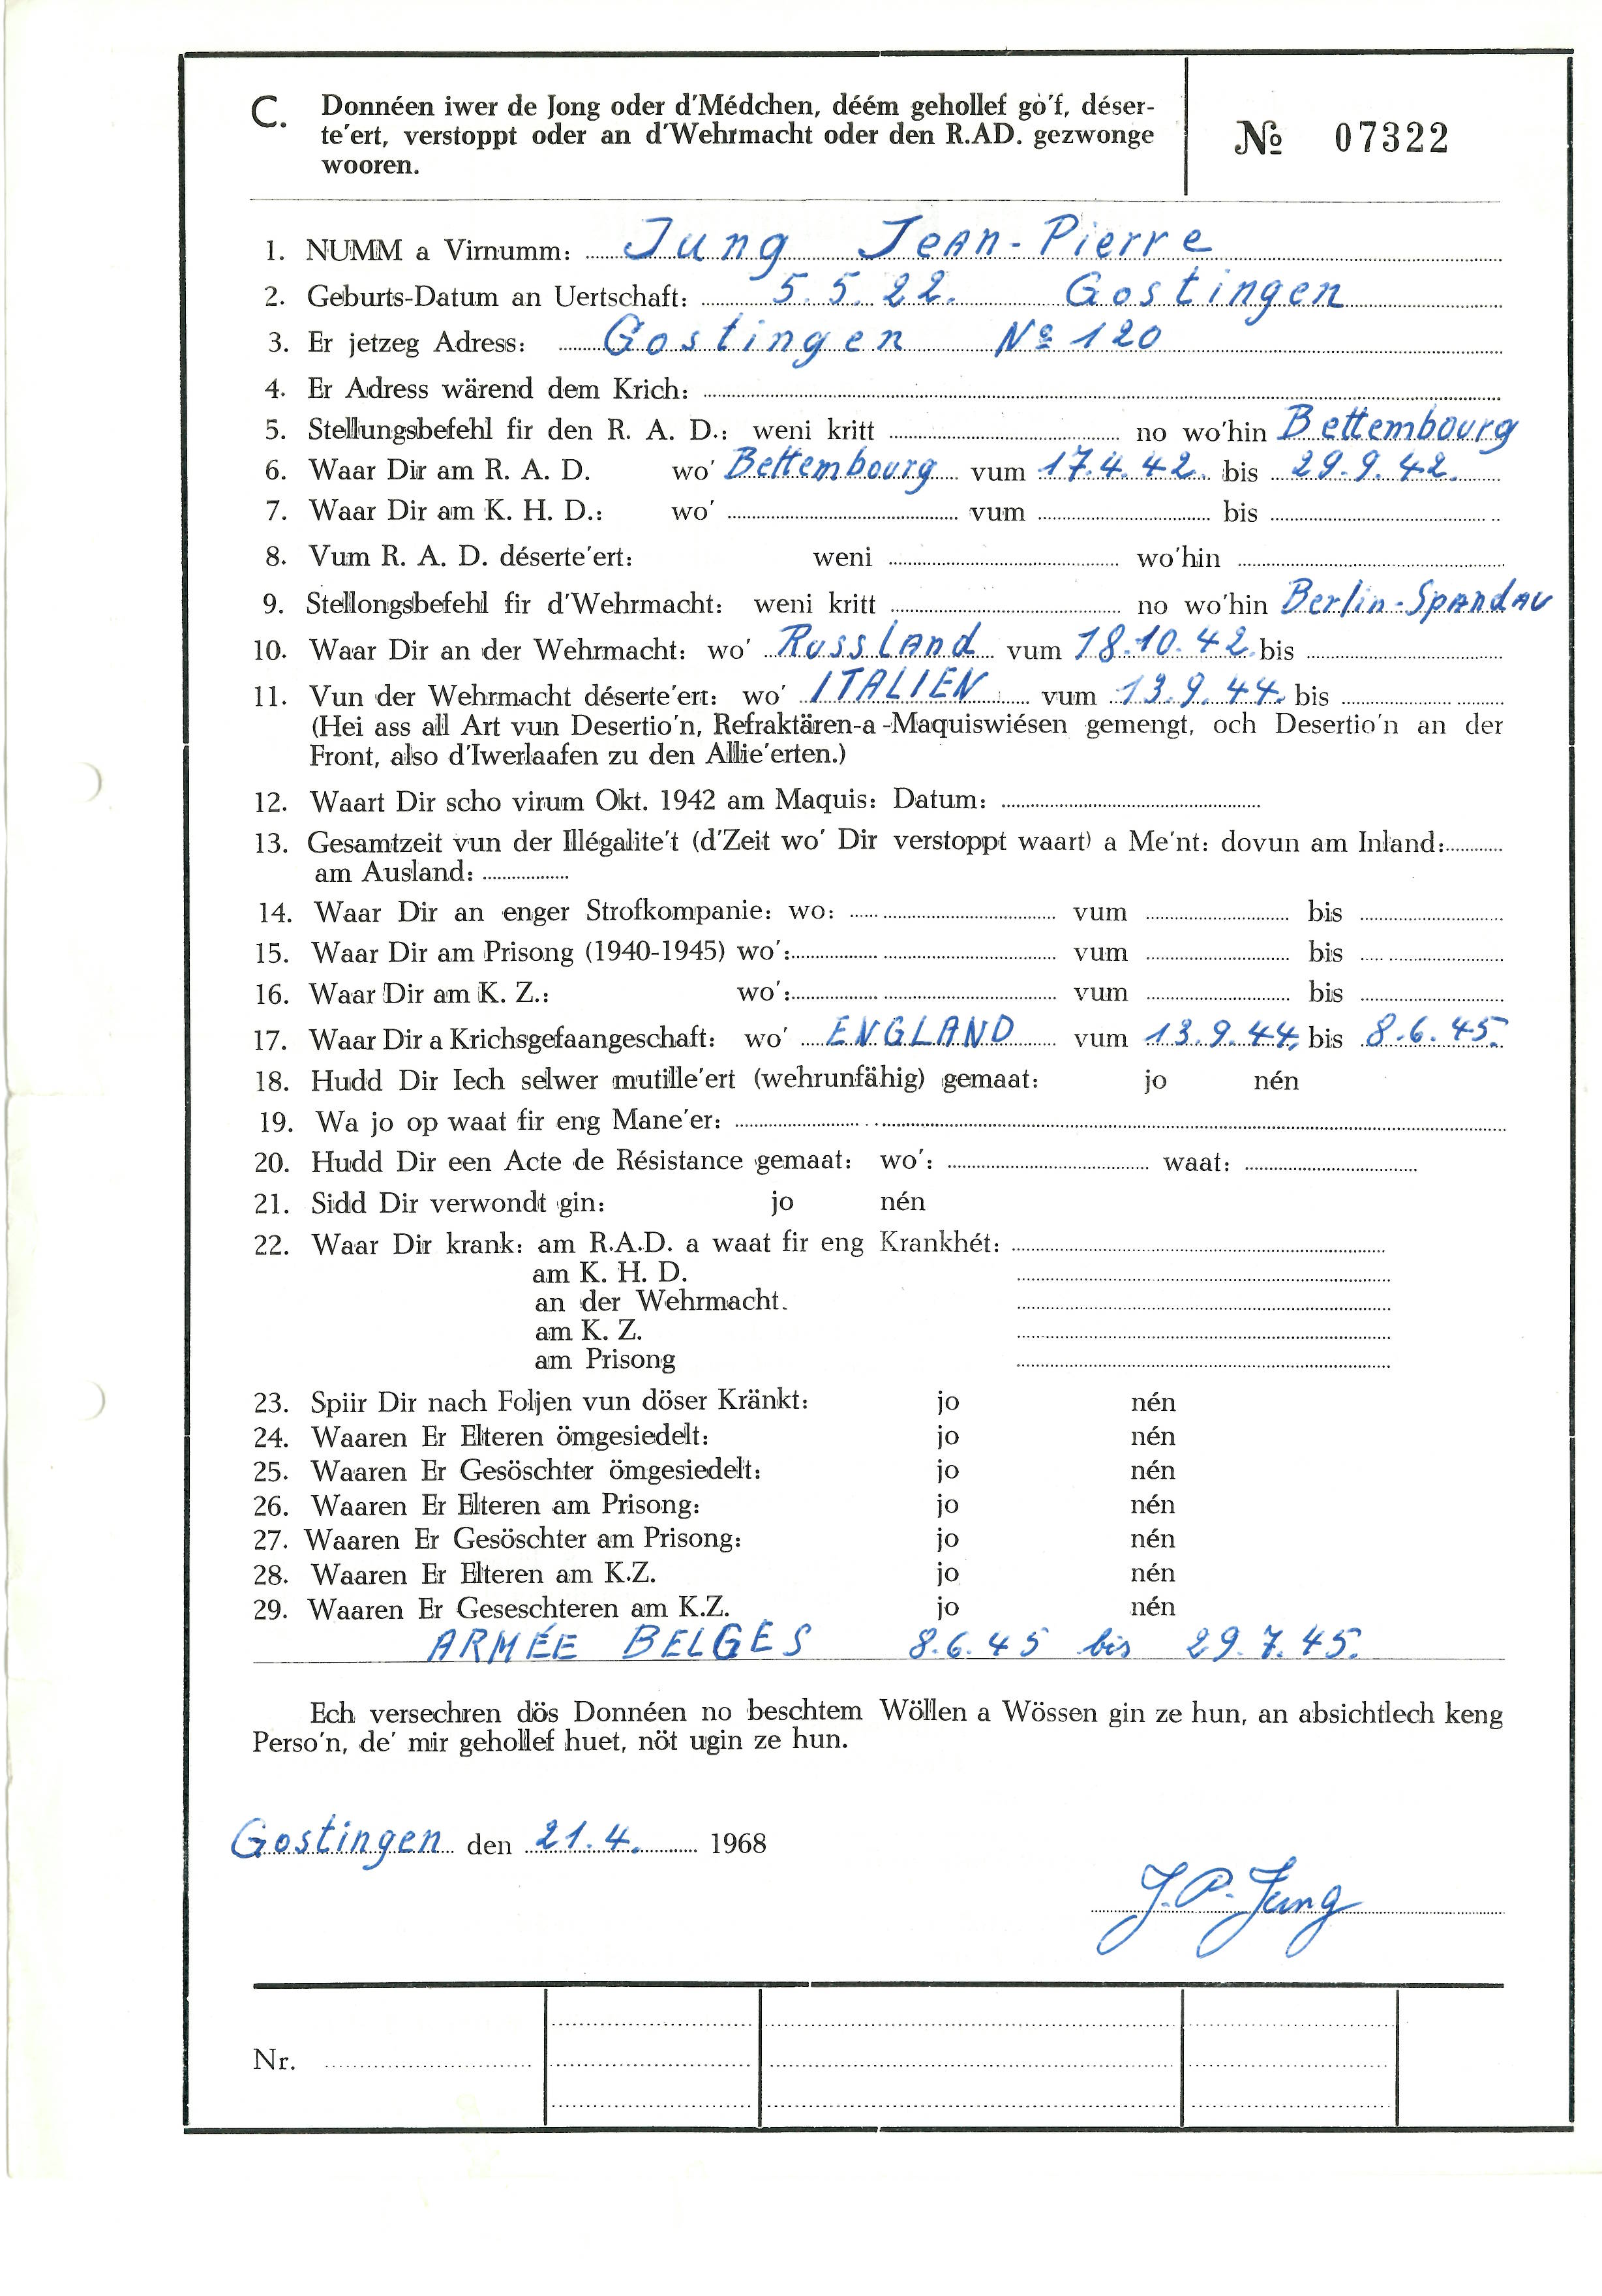 C. Donnéen iwer de Jong oder d'Médchen, déém gehollef gò'f, déser-
te'ert, verstoppt oder an d'Wehrmacht oder den R.AD. gezwonge
wooren.
№ 07322
1. NUMM a Virnumm: Jung Jean-Pierre
2. Geburts-Datum an Uertschaft: 5.5.22. Gostingen
3. Er jetzeg Adress: Gostingen Nº 120
4. Er Adress wärend dem Krich:
5. Stellungsbefehl fir den R. A. D.: weni kritt no wo'hin Bettembourg
6. Waar Dir am R. A. D. wo' Bettembourg vum 17.4.42. bis 29.9.42.
7. Waar Dir am K. H. D.: wo' vum bis
8. Vum R. A. D. déserte'ert: weni wo'hin
9. Stellongsbefehl fir d'Wehrmacht: weni kritt no wo'hin Berlin-Spandau
10. Waar Dir an der Wehrmacht: wo' Russland vum 18.10.42. bis
11. Vun der Wehrmacht déserte'ert: wo' ITALIEN vum 13.9.44. bis
(Hei ass all Art vun Desertio'n, Refraktären-a-Maquiswiésen gemengt, och Desertio'n an der
Front, also d'Iwerlaafen zu den Allie'erten.)
12. Waart Dir scho virum Okt. 1942 am Maquis: Datum:
13. Gesamtzeit vun der Illégalite't (d'Zeit wo' Dir verstoppt waart) a Me'nt: dovun am Inland:
am Ausland:
14. Waar Dir an enger Strofkompanie: wo: vum bis
15. Waar Dir am Prisong (1940-1945) wo': vum bis
16. Waar Dir am K. Z.: wo': vum bis
17. Waar Dir a Krichsgefaangeschaft: wo' ENGLAND vum 13.9.44. bis 8.6.45.
18. Hudd Dir Iech selwer mutille'ert (wehrunfähig) gemaat: jo nén
19. Wa jo op waat fir eng Mane'er:
20. Hudd Dir een Acte de Résistance gemaat: wo': waat:
21. Sidd Dir verwondt gin: jo nén
22. Waar Dir krank: am R.A.D. a waat fir eng Krankhét:
am K. H. D.
an der Wehrmacht.
am K. Z.
am Prisong
23. Spiir Dir nach Foljen vun döser Kränkt: jo nén
24. Waaren Er Elteren ömgesiedelt: jo nén
25. Waaren Er Gesöschter ömgesiedelt: jo nén
26. Waaren Er Elteren am Prisong: jo nén
27. Waaren Er Gesöschter am Prisong: jo nén
28. Waaren Er Elteren am K.Z. jo nén
29. Waaren Er Geseschteren am K.Z. jo nén
ARMÉE BELGES 8.6.45 bis 29.7.45.
Ech versechren dös Donnéen no beschtem Wöllen a Wössen gin ze hun, an absichtlech keng
Perso'n, de' mir gehollef huet, nöt ugin ze hun.
Gostingen den 21.4. 1968
J.P. Jung
Nr.